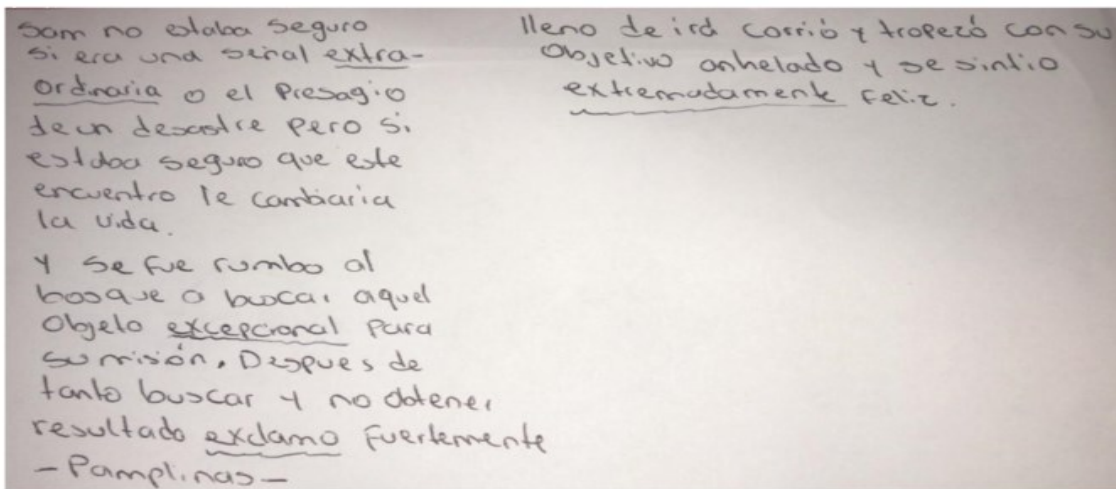 Sam no estaba seguro
si era una señal extra-
ordinaria o el Presagio
de un desastre pero si
estaba seguro que este
encuentro le cambiaria
la vida.
Y se fue rumbo al
bosque a buscar aquel
Objeto excepcional para
su misión. Despues de
tanto buscar y no obtener
resultado exclamo Fuertemente
- Pamplinas -
lleno de ira corrió y tropezó con su
Objetivo anhelado y se sintio
extremadamente Feliz.